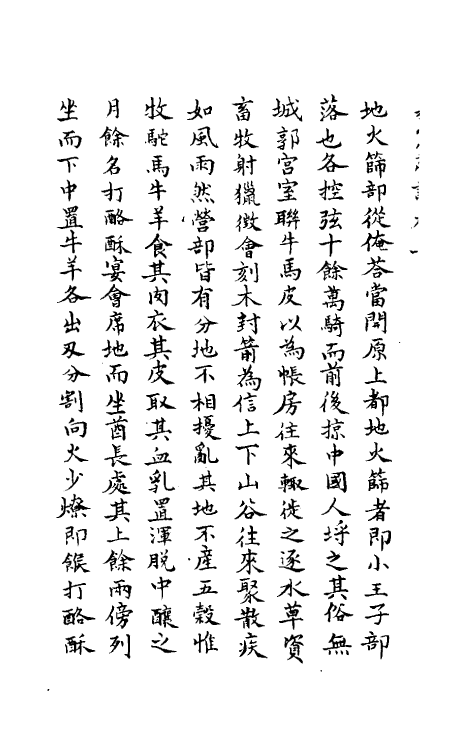 地火篩部從俺荅當開原上都地火篩者即小王子部
落也各控弦十餘萬騎而前後掠中國人埒之其俗無
城郭宮室聯牛馬皮以為帳房往來輙徙之逐水草資
畜牧射獵徴會刻木封箭為信上下山谷往來聚散疾
如風雨然營部皆有分地不相擾亂其地不產五穀惟
牧駝馬牛羊食其肉衣其皮取其血乳置渾脱中釀之
月餘名打酪酥宴會席地而坐酋長處其上餘兩傍列
坐而下中置牛羊各出刃分割向火少燎即餱打酪酥